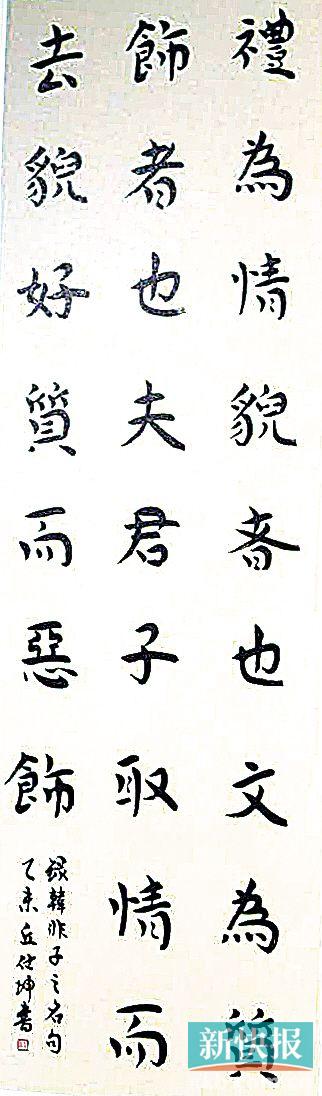 禮為情貌者也文為質
飾者也夫君子取情而
去貌好質而惡飾
錄韓非子之名句
乙未 丘仕坤書
新快报